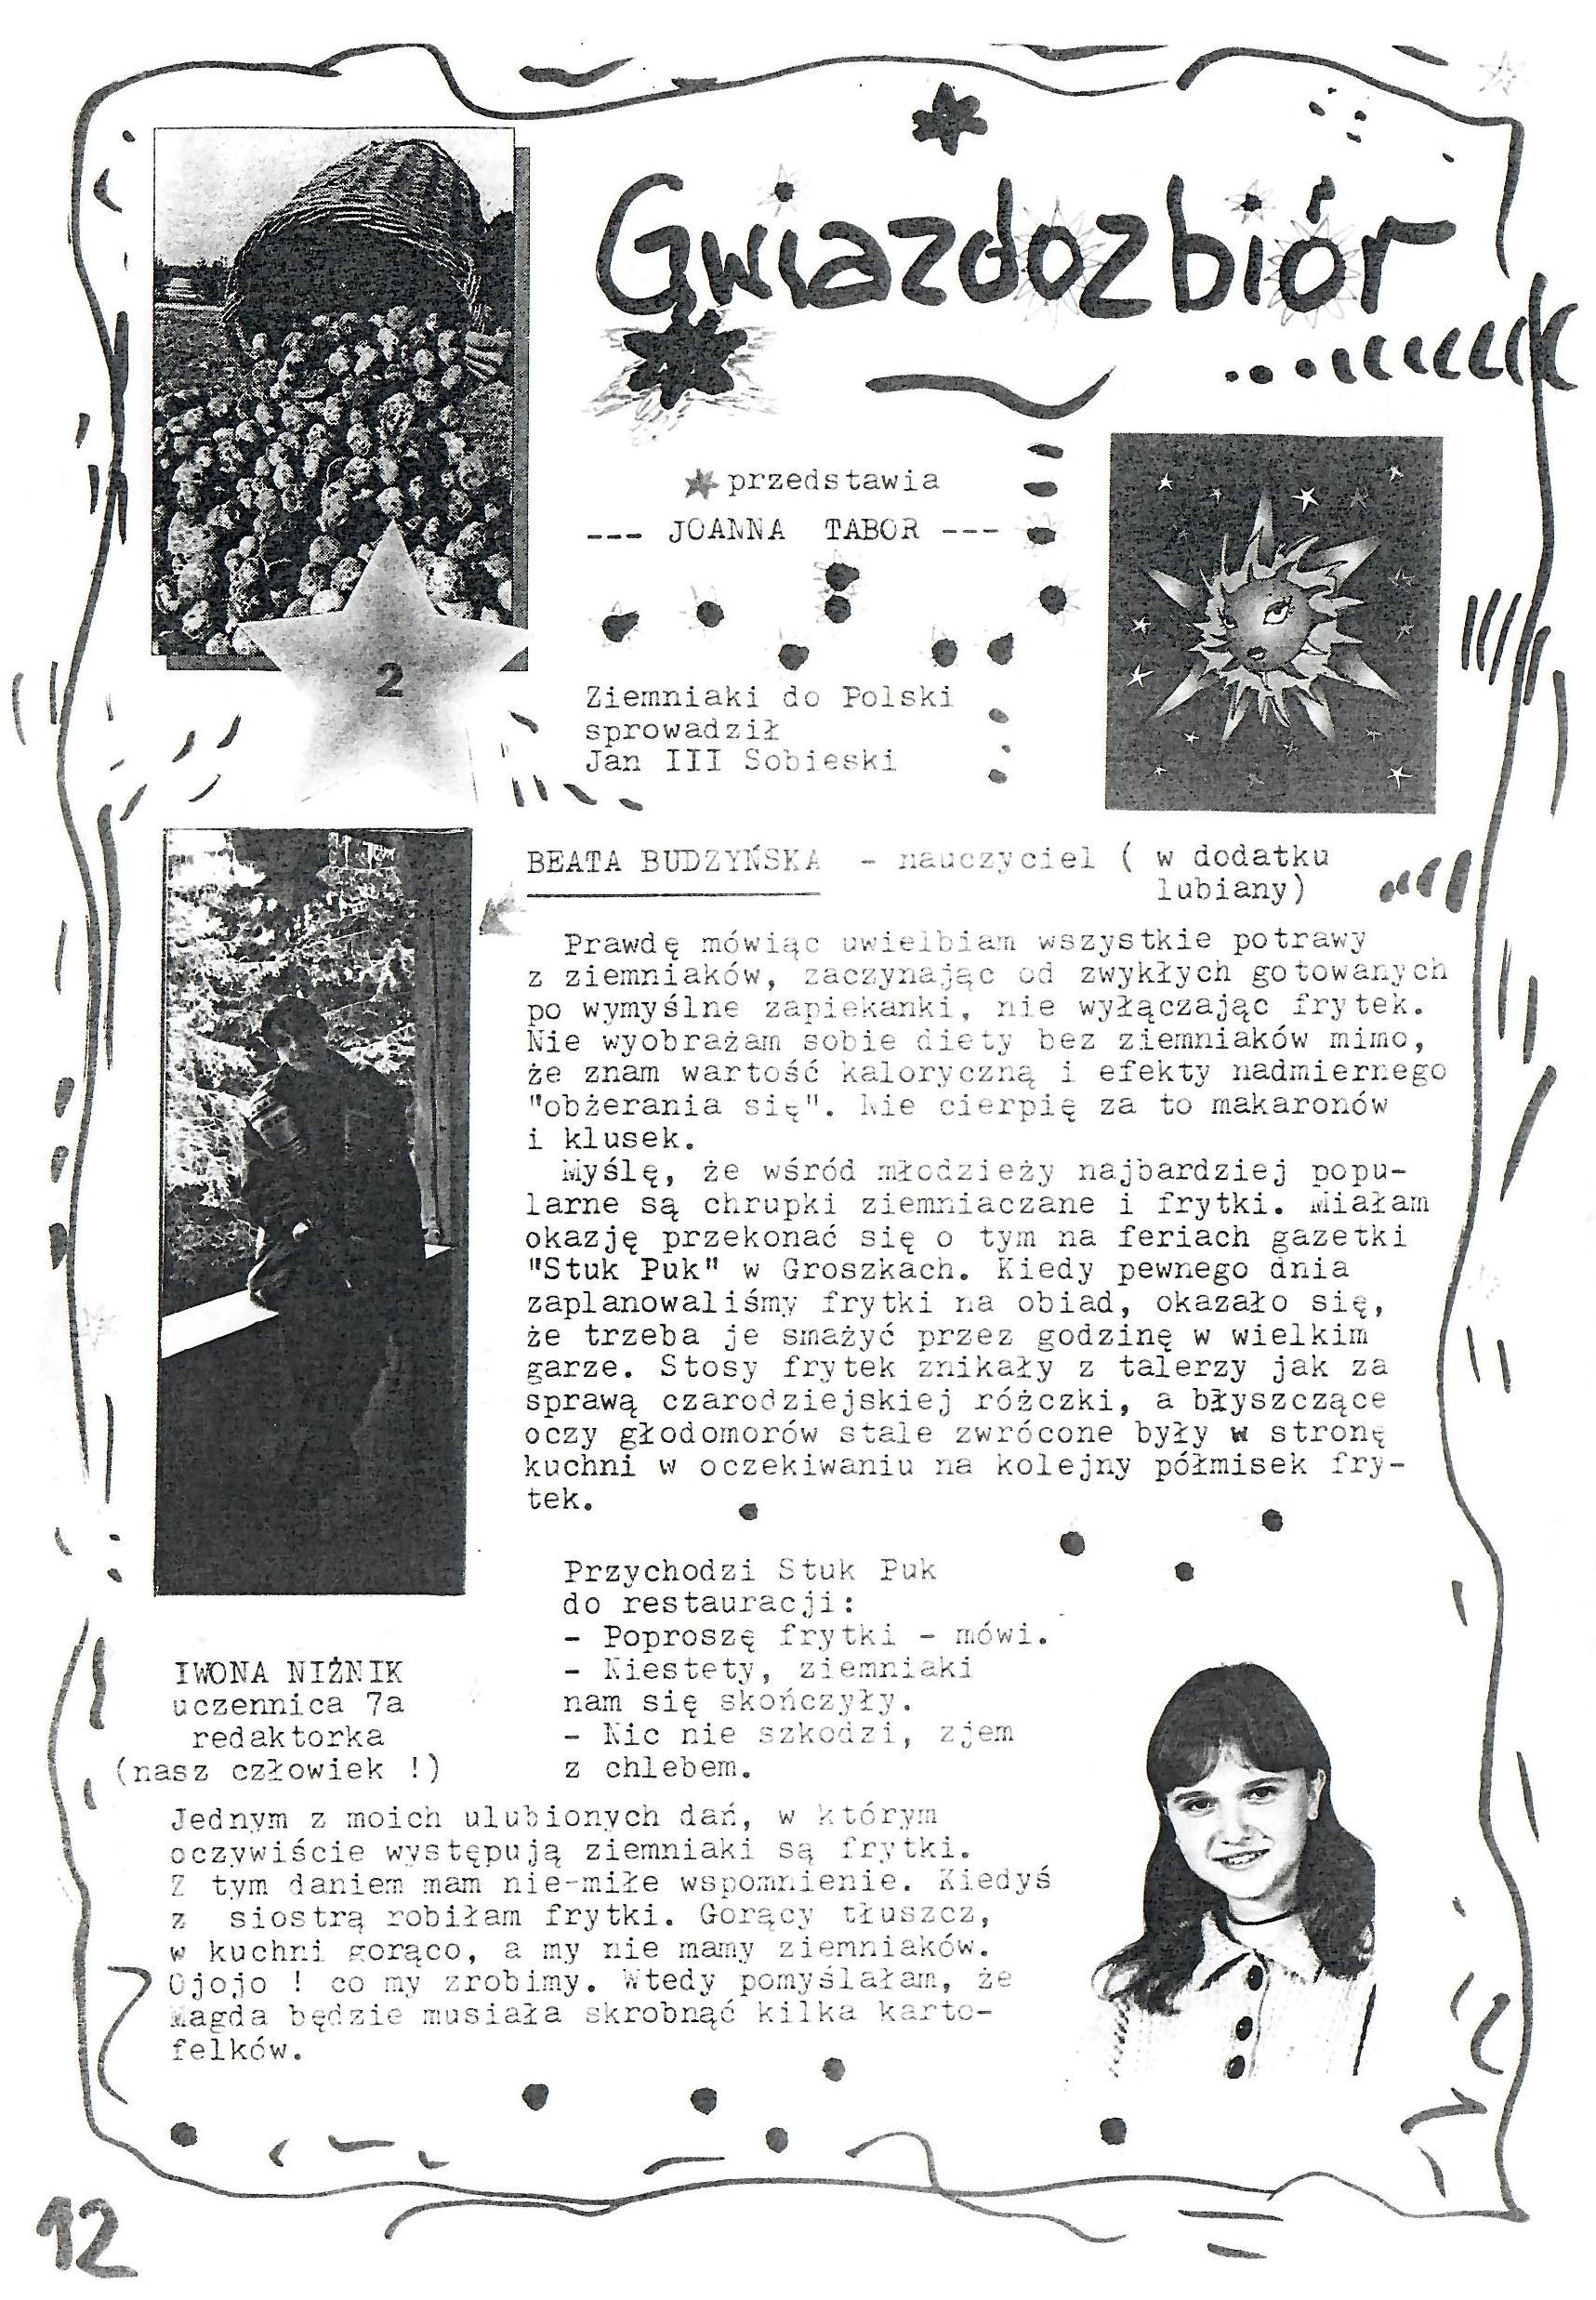 Gwiazdozbiór
przedstawia
--- JOANNA TABOR ---
2
Ziemniaki do Polski
sprowadził
Jan III Sobieski
BEATA BUDZYŃSKA - nauczyciel ( w dodatku
lubiany)
Prawdę mówiąc uwielbiam wszystkie potrawy
z ziemniaków, zaczynając od zwykłych gotowanych
po wymyślne zapiekanki, nie wyłączając frytek.
Nie wyobrażam sobie diety bez ziemniaków mimo,
że znam wartość kaloryczną i efekty nadmiernego
"obżerania się". Nie cierpię za to makaronów
i klusek.
Myślę, że wśród młodzieży najbardziej popu-
larne są chrupki ziemniaczane i frytki. Miałam
okazję przekonać się o tym na feriach gazetki
"Stuk Puk" w Groszkach. Kiedy pewnego dnia
zaplanowaliśmy frytki na obiad, okazało się,
że trzeba je smażyć przez godzinę w wielkim
garze. Stosy frytek znikały z talerzy jak za
sprawą czarodziejskiej różczki, a błyszczące
oczy głodomorów stale zwrócone były w stronę
kuchni w oczekiwaniu na kolejny półmisek fry-
tek.
Przychodzi Stuk Puk
do restauracji:
- Poproszę frytki - mówi.
- Niestety, ziemniaki
nam się skończyły.
- Nic nie szkodzi, zjem
z chlebem.
IWONA NIŻNIK
uczennica 7a
redaktorka
(nasz człowiek !)
Jednym z moich ulubionych dań, w którym
oczywiście występują ziemniaki są frytki.
Z tym daniem mam nie-miłe wspomnienie. Kiedyś
z siostrą robiłam frytki. Gorący tłuszcz,
w kuchni gorąco, a my nie mamy ziemniaków.
Ojojo ! co my zrobimy. Wtedy pomyślałam, że
Magda będzie musiała skrobnąć kilka karto-
felków.
12